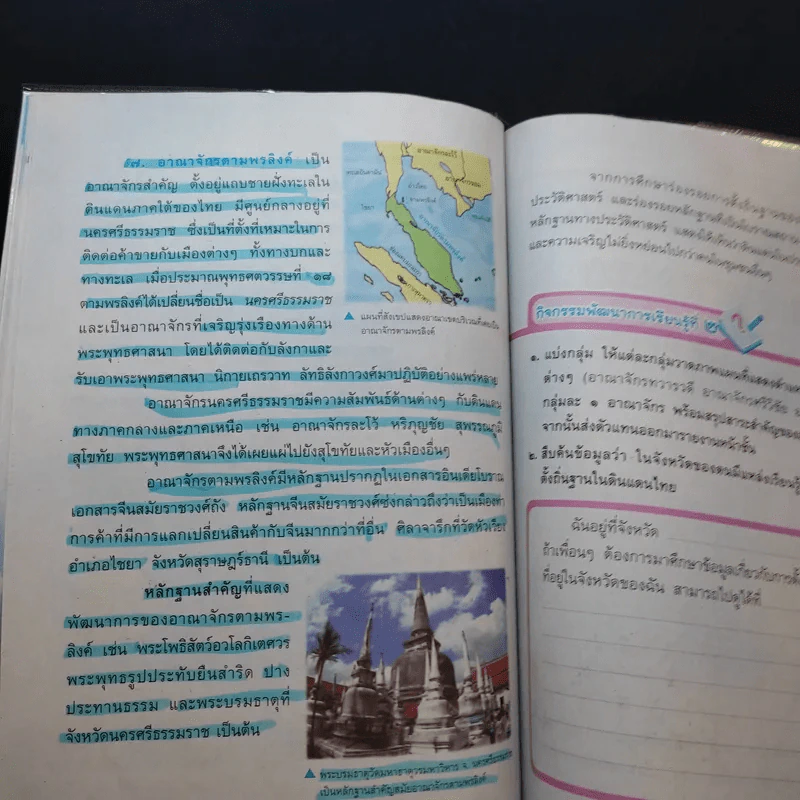 ๗. อาณาจักรตามพรลิงค์ เป็น
อาณาจักรสำคัญ ตั้งอยู่แถบชายฝั่งทะเลใน
ดินแดนภาคใต้ของไทย มีศูนย์กลางอยู่ที่
นครศรีธรรมราช ซึ่งเป็นที่ตั้งที่เหมาะในการ
ติดต่อค้าขายกับเมืองต่างๆ ทั้งทางบกและ
ทางทะเล เมื่อประมาณพุทธศตวรรษที่ ๑๘
ตามพรลิงค์ได้เปลี่ยนชื่อเป็น นครศรีธรรมราช
และเป็นอาณาจักรที่เจริญรุ่งเรืองทางด้าน
พระพุทธศาสนา โดยได้ติดต่อกับลังกาและ
รับเอาพระพุทธศาสนา นิกายเถรวาท ลัทธิลังกาวงศ์มาปฏิบัติอย่างแพร่หลาย
อาณาจักรนครศรีธรรมราชมีความสัมพันธ์ด้านต่างๆ กับดินแดน
ทางภาคกลางและภาคเหนือ เช่น อาณาจักรละโว้ หริภุญชัย สุพรรณภูมิ
สุโขทัย พระพุทธศาสนาจึงได้เผยแผ่ไปยังสุโขทัยและหัวเมืองอื่นๆ
อาณาจักรตามพรลิงค์มีหลักฐานปรากฏในเอกสารอินเดียโบราณ
เอกสารจีนสมัยราชวงศ์ถัง หลักฐานจีนสมัยราชวงศ์ซ่งกล่าวถึงว่าเป็นเมืองท่า
การค้าที่มีการแลกเปลี่ยนสินค้ากับจีนมากกว่าที่อื่น ศิลาจารึกที่วัดหัวเวียง
อำเภอไชยา จังหวัดสุราษฎร์ธานี เป็นต้น
หลักฐานสำคัญที่แสดง
พัฒนาการของอาณาจักรตามพร-
ลิงค์ เช่น พระโพธิสัตว์อวโลกิเตศวร
พระพุทธรูปประทับยืนสำริด ปาง
ประทานธรรม และพระบรมธาตุที่
จังหวัดนครศรีธรรมราช เป็นต้น
อาณาจักรละโว้
อ่าวไทย
ไชยา
▲ แผนที่สังเขปแสดงอาณาเขตบริเวณที่เคยเป็น
อาณาจักรตามพรลิงค์
▲ พระบรมธาตุวัดมหาธาตุวรมหาวิหาร จ. นครศรีธรรมราช
เป็นหลักฐานสำคัญสมัยอาณาจักรตามพรลิงค์
จากการศึกษาร่องรอยการตั้งถิ่นฐานของ
ประวัติศาสตร์ และร่องรอยหลักฐาน
หลักฐานทางประวัติศาสตร์ แสดงให้เห็นว่าดินแดน
และความเจริญไม่ยิ่งหย่อนไปกว่าคนในชุมชนอื่นๆ
กิจกรรมพัฒนาการเรียนรู้ที่ ๒
๑. แบ่งกลุ่ม ให้แต่ละกลุ่มวาดภาพแผนที่แสดง
ต่างๆ (อาณาจักรทวารวดี อาณาจักรศรีวิชัย
กลุ่มละ ๑ อาณาจักร พร้อมสรุปสาระสำคัญของ
จากนั้นส่งตัวแทนออกมารายงานหน้าชั้น
๒. สืบค้นข้อมูลว่า ในจังหวัดของตนมีแหล่งเรียนรู้
ตั้งถิ่นฐานในดินแดนไทย
ฉันอยู่ที่จังหวัด
ถ้าเพื่อนๆ ต้องการมาศึกษาข้อมูลเกี่ยวกับการตั้ง
ที่อยู่ในจังหวัดของฉัน สามารถไปดูได้ที่